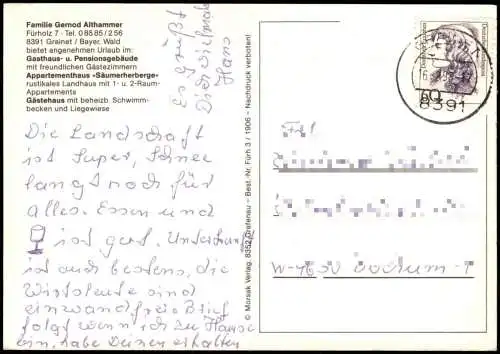 Familie Gernod Althammer
Fürholz 7 · Tel. 0 85 85 / 2 56
8391 Grainet / Bayer. Wald
bietet angenehmen Urlaub im:
Gasthaus- u. Pensionsgebäude
mit freundlichen Gästezimmern
Appartementhaus »Säumerherberge«
rustikales Landhaus mit 1- u. 2-Raum-
Appartements
Gästehaus mit beheizb. Schwimm-
becken und Liegewiese
Es grüßt
Dich vielmals
Hans
Die Landschaft
ist Super, Schnee
langt noch für
alles. Essen und
ist gut. Unterkunft
ist auch bestens, die
Wirtsleute sind
einwandfrei. Brief
folgt wenn ich zu Hause
bin, habe Deinen erhalten
© Morsak Verlag · 8352 Grafenau – Best.-Nr. Fürh 3 / 1906 – Nachdruck verboten!
60
8391
Frl
W-4630 Bochum-1